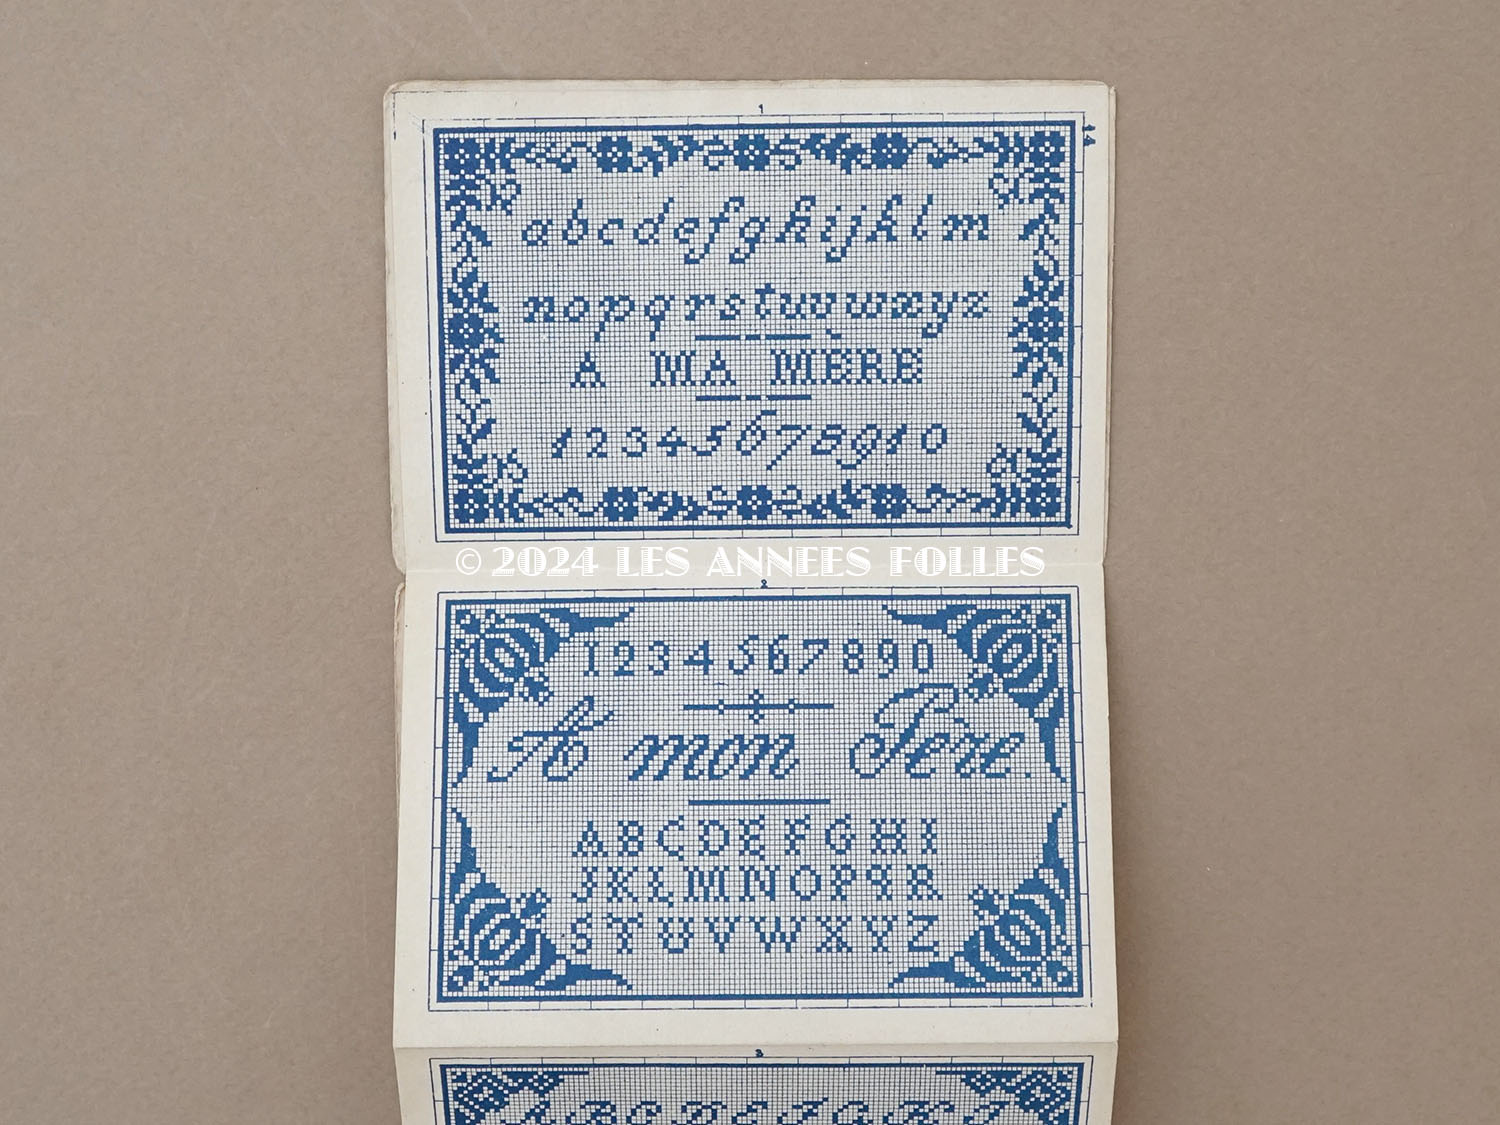 1
14
abcdefghijklm
nopqrstuvwxyz
A MA MÈRE
12345678910
© 2024 LES ANNEES FOLLES
2
1234567890
A mon Père.
ABCDEFGHI
JKLMNOPQR
STUVWXYZ
3
ABCDEFGHI